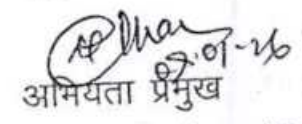 07-01-26
अभियंता प्रमुख